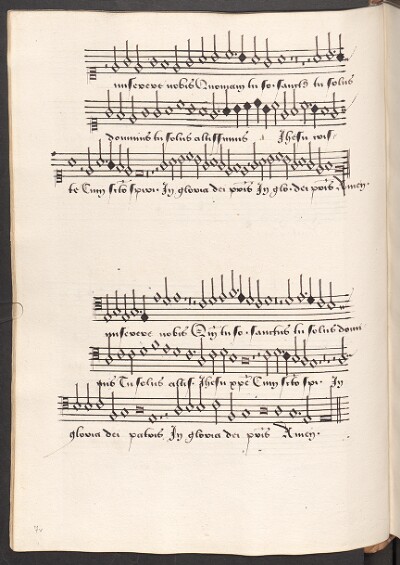 miserere nobis Quoniam tu so. sanctus tu solus
dominus tu solus altissimus Jhesu xris
te Cum scto spiri. In gloria dei pris In glo. dei pris Amen.
miserere nobis Qm tu so. sanctus tu solus domi
nus Tu solus altis. Jhesu xpe Cum scto spi. In
gloria dei patris In gloria dei pris Amen.
7v